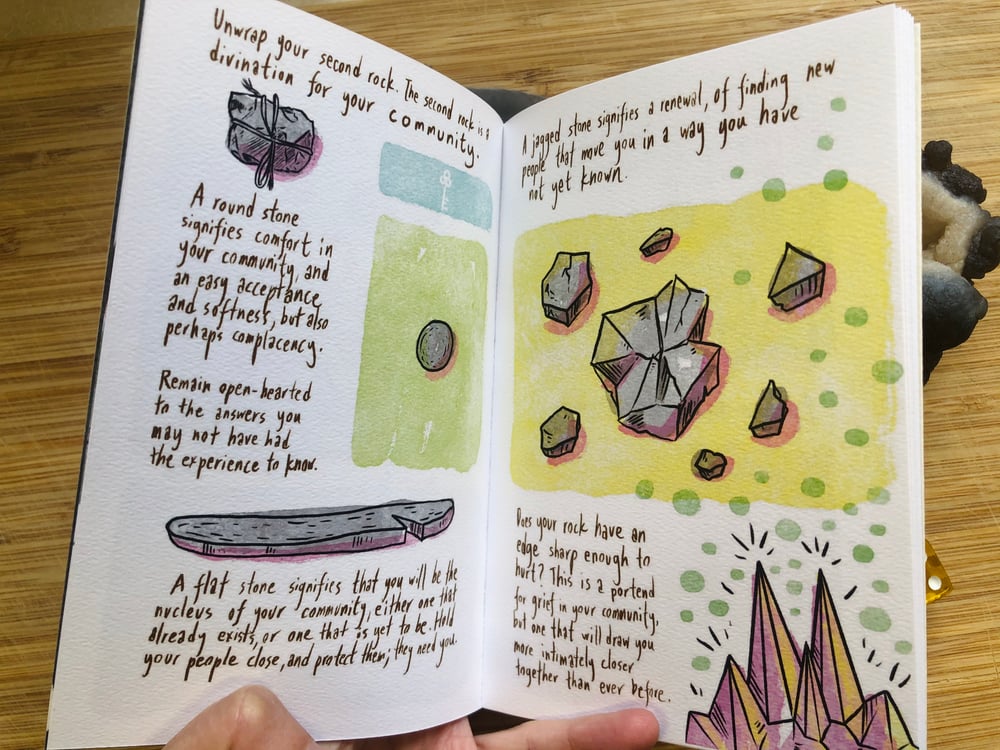 Unwrap your second rock. The second rock is a
divination for your community.
A round stone
signifies comfort in
your community, and
an easy acceptance
and softness, but also
perhaps complacency.
Remain open-hearted
to the answers you
may not have had
the experience to know.
A flat stone signifies that you will be the
nucleus of your community, either one that
already exists, or one that is yet to be. Hold
your people close, and protect them; they need you.
A jagged stone signifies a renewal, of finding new
people that move you in a way you have
not yet known.
Does your rock have an
edge sharp enough to
hurt? This is a portend
for grief in your community,
but one that will draw you
more intimately closer
together than ever before.